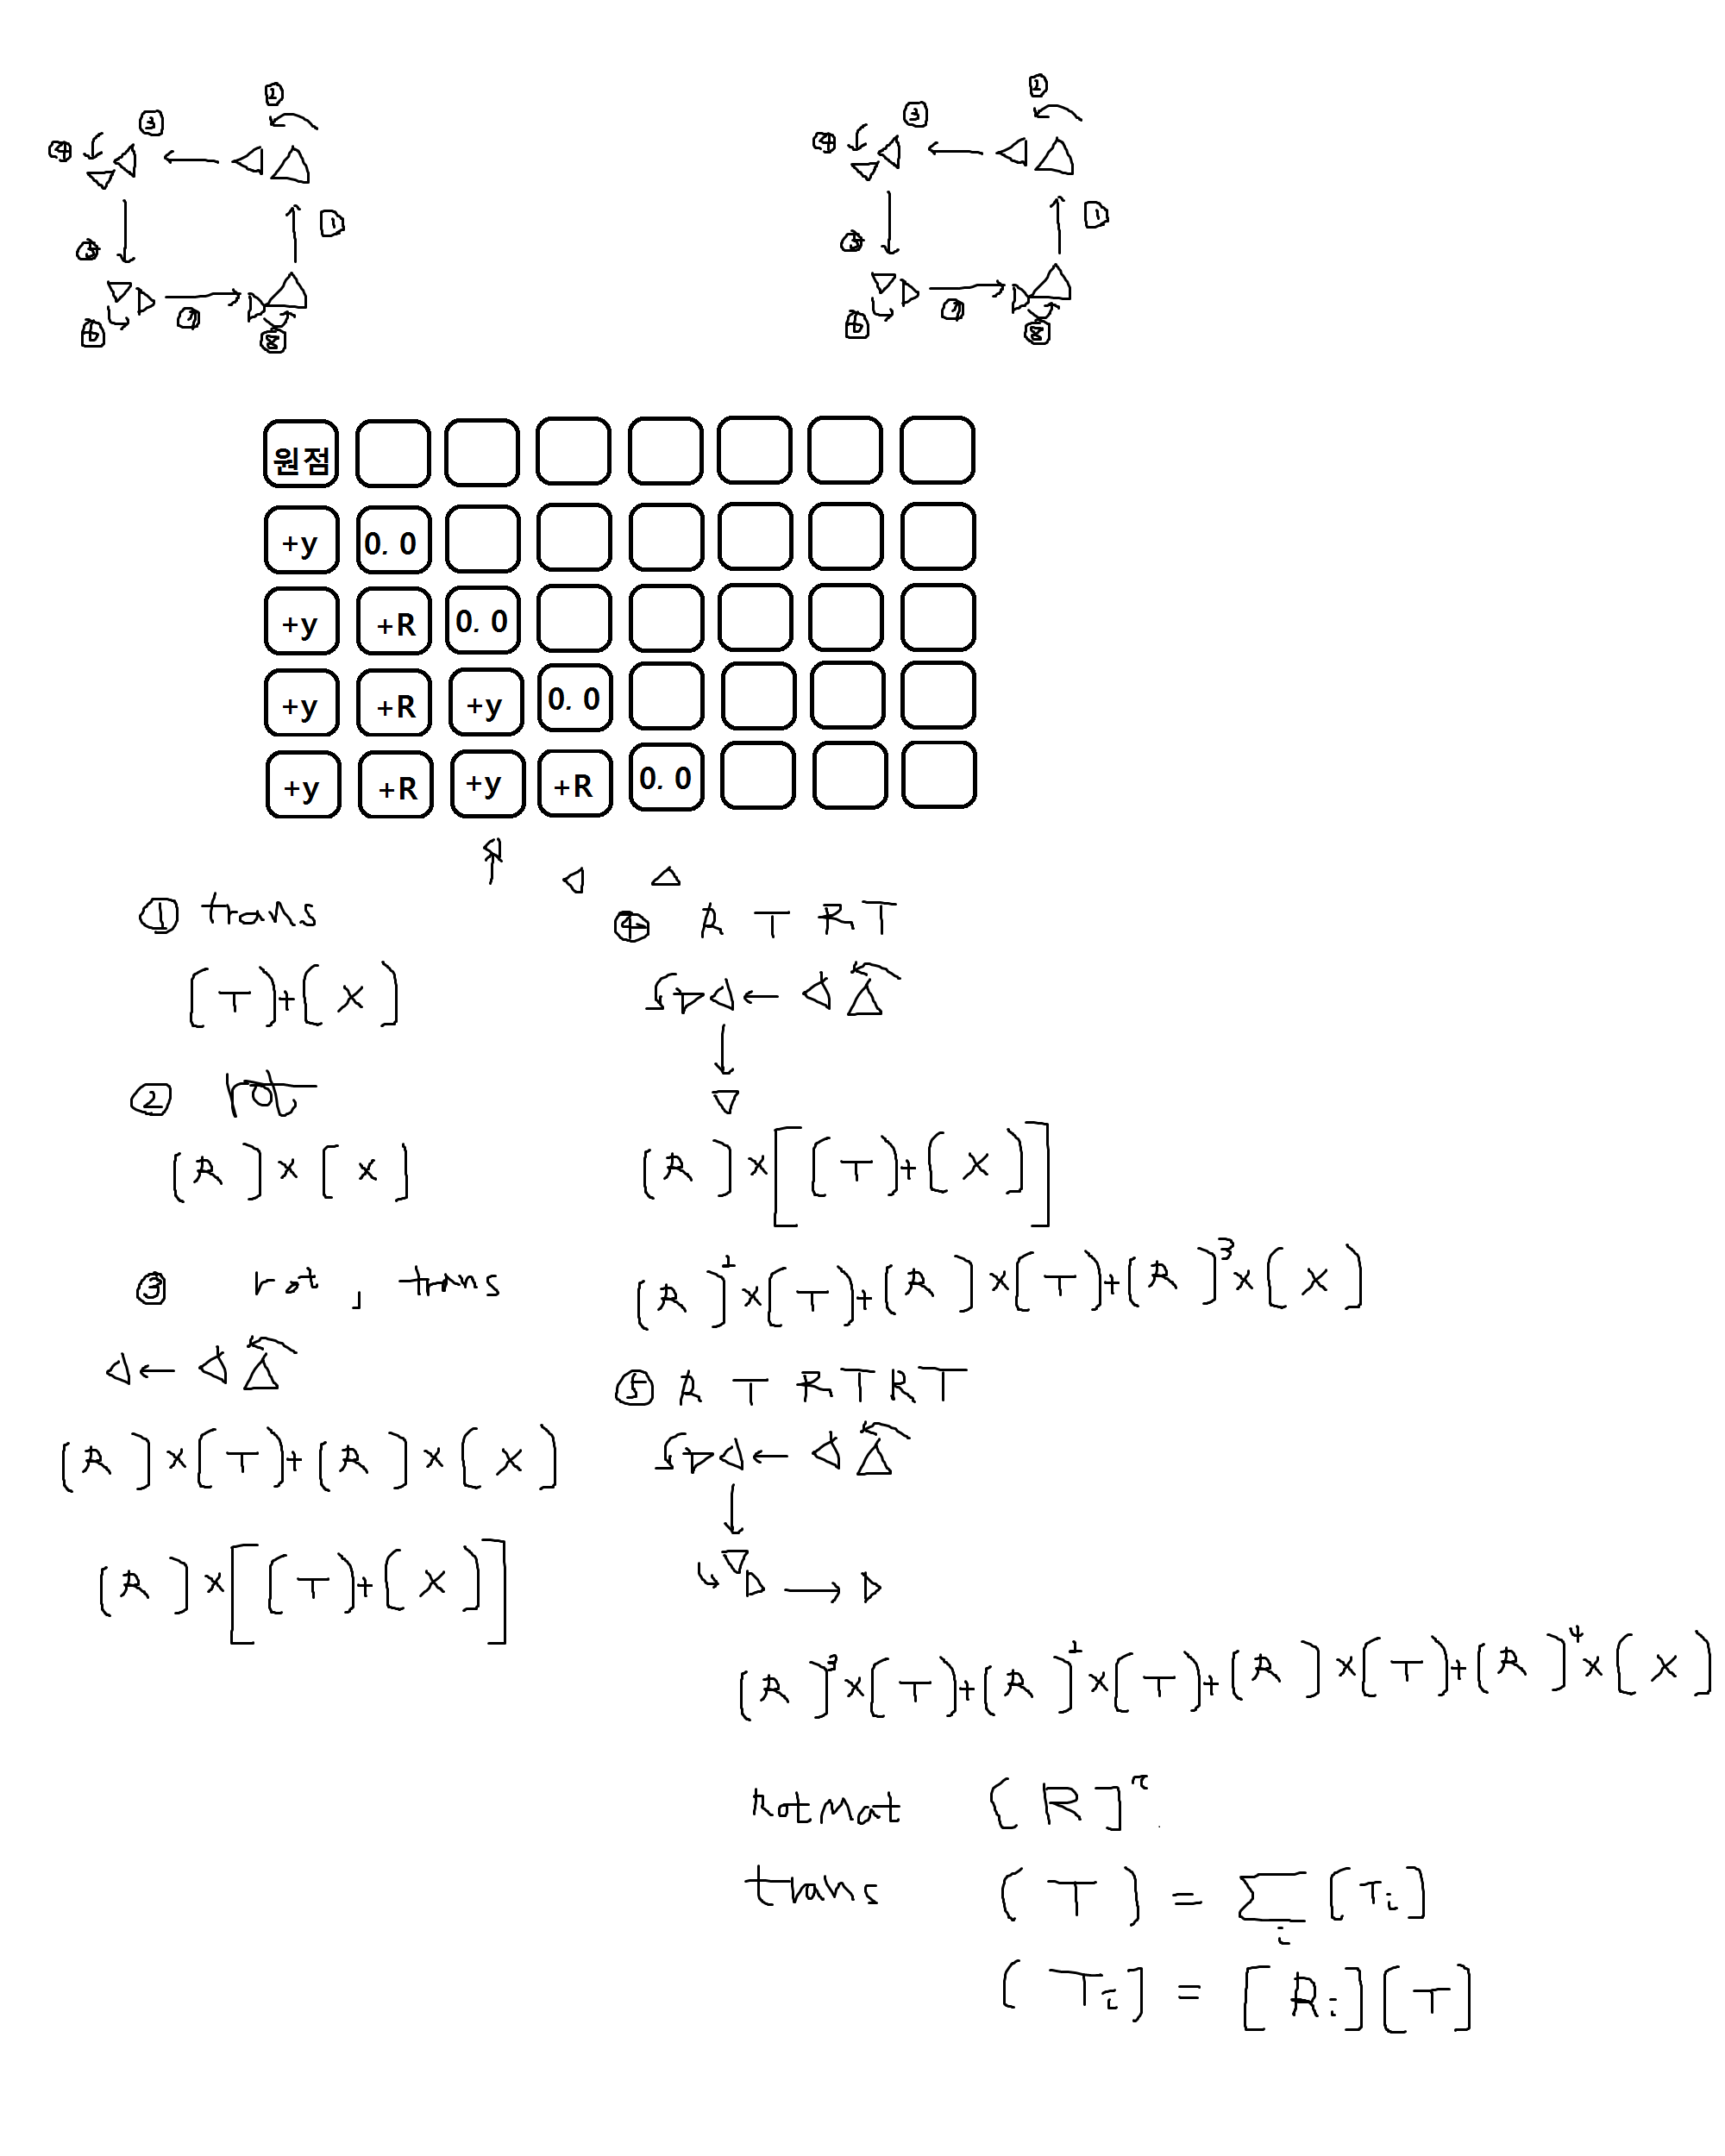 ② ②
③ ③
④ ④
① ①
⑤ ⑤
⑦ ⑦
⑥ ⑥
⑧ ⑧
원점
+y 0.0
+y +R 0.0
+y +R +y 0.0
+y +R +y +R 0.0
① trans
[T]+[X]
② rot
[R]×[X]
③ rot, trans
[R]×[T]+[R]×[X]
[R]×[[T]+[X]]
④ R T R T
[R]×[[T]+[X]]
[R]²×[T]+[R]×[T]+[R]³×[X]
⑤ R T R T R T
[R]³×[T]+[R]²×[T]+[R]×[T]+[R]⁴×[X]
rotMat [R]
trans (T) = Σi [Ti]
[Ti] = [Ri][T]